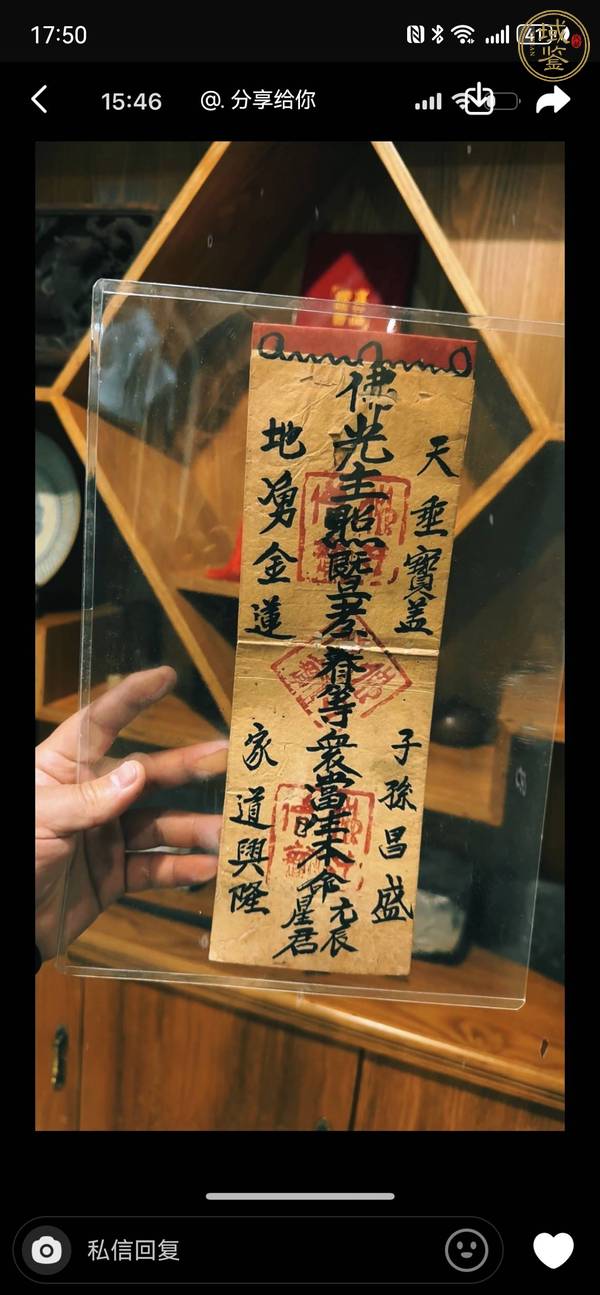 17:50
41
域鉴
15:46
@. 分享给你
佛光主照
考
春等衆當生本命
元辰
星君
天垂寶盖
子孫昌盛
地湧金蓮
家道興隆
私信回复